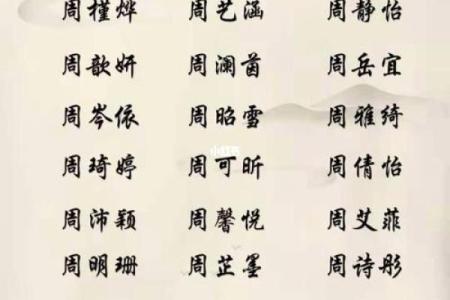 周槿烨 周艺涵 周静怡
周歆妍 周澜茵 周岳宜
周岑依 周昭雪 周雅绮
周琦婷 周可昕 周倩怡
小红书
周沛颖 周馨悦 周艾菲
周明珊 周芷墨 周诗彤